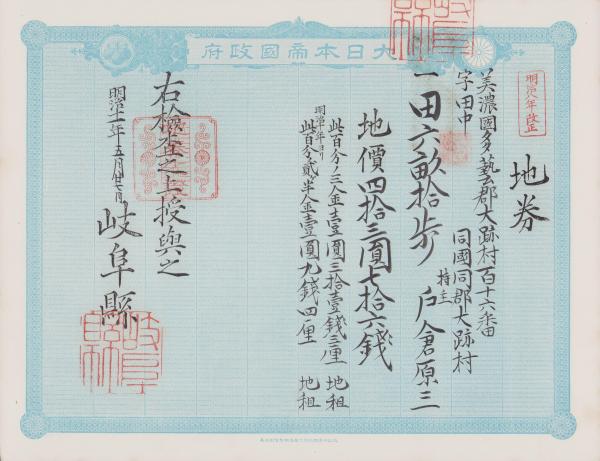 大日本帝國政府
明治八年改正
地券
美濃國多藝郡大跡村百十六番
字田中
同國同郡大跡村
持主 戸倉原三
一田六畝拾歩
地價四拾三圓七拾六錢
此百分ノ三金壹圓三拾壹錢三厘 地租
明治十年ヨリ
此百分ノ貳半金壹圓九錢四厘 地租
右檢査之上授與之
明治十一年五月廿七日
岐阜縣